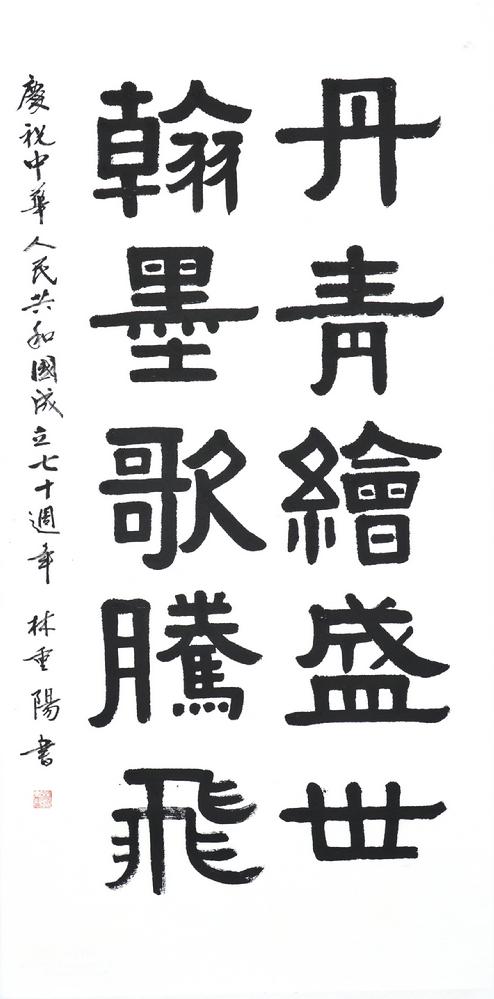 丹青繪盛世
翰墨歌騰飛
慶祝中華人民共和國成立七十週年 林重陽書